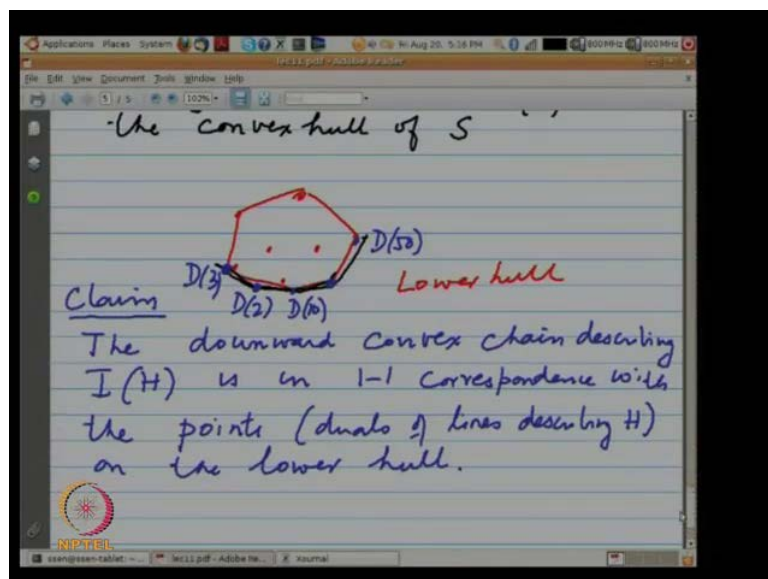 Applications Places System Fri Aug 20, 5:36 PM 800 MHz 800 MHz
lec11.pdf - Adobe Reader
File Edit View Document Tools Window Help
5 / 5 102%
the convex hull of S
D(50)
D(3)
Lower hull
D(2) D(10)
Claim
The downward convex chain describing
I(H) is in 1-1 correspondence with
the points (duals of lines describing H)
on the lower hull.
NPTEL
ssen@ssen-tablet: ~... lec11.pdf - Adobe Re... Xournal